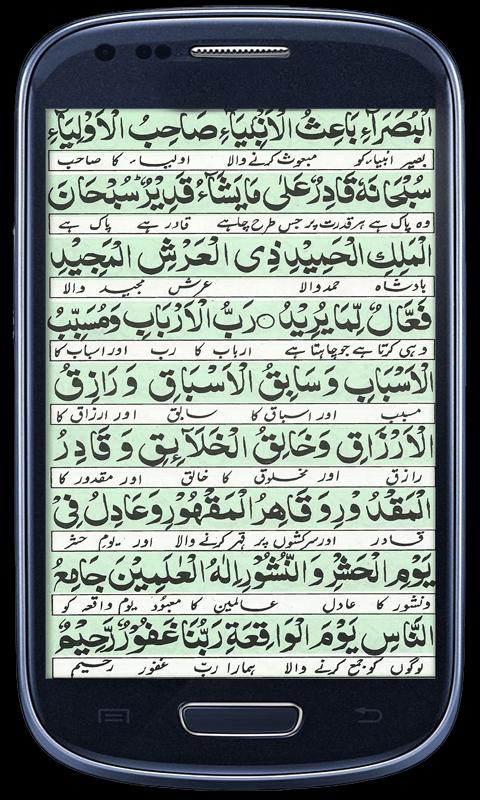 الْبُصَرَآءِ بَاعِثُ الْاَنْبِيَآءِ صَاحِبُ الْاَوْلِيَآءِ
بصیر انبیاء کو مبعوث کرنے والا اولیاء کا صاحب
سُبْحَانَهٗ قَادِرٌ عَلٰى مَا يَشَآءُ قَدِيْرٌ سُبْحَانَ
وہ پاک ہے ہر قدرت پر جس طرح چاہے قادر ہے پاک ہے
الْمَلِكِ الْحَمِيْدِ ذِى الْعَرْشِ الْمَجِيْدِ
بادشاہ حمد والا عرش مجید والا
فَعَّالٌ لِّمَا يُرِيْدُ ○ رَبُّ الْاَرْبَابِ وَمُسَبِّبُ
وہی کرتا ہے جو چاہتا ہے ارباب کا رب اور اسباب کا
الْاَسْبَابِ وَسَابِقُ الْاَسْبَاقِ وَرَازِقُ
مسبب اور اسباق کا سابق اور ارزاق کا
الْاَرْزَاقِ وَخَالِقُ الْخَلَآئِقِ وَقَادِرُ
رازق اور مخلوق کا خالق اور مقدور کا
الْمَقْدُوْرِ وَقَاهِرُ الْمَقْهُوْرِ وَعَادِلٌ فِىْ
قادر اور سرکشوں پر قہر کرنے والا اور یوم حشر
يَوْمِ الْحَشْرِ وَالنُّشُوْرِ اِلٰهُ الْعٰلَمِيْنَ جَامِعُ
ونشور کا عادل عالمین کا معبود یوم واقعہ کو
النَّاسِ يَوْمَ الْوَاقِعَةِ رَبُّنَا غَفُوْرٌ رَّحِيْمٌ
لوگوں کو جمع کرنے والا ہمارا رب غفور رحیم